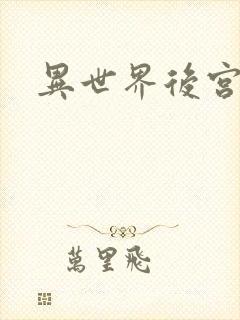 異世界後宮
萬里飛